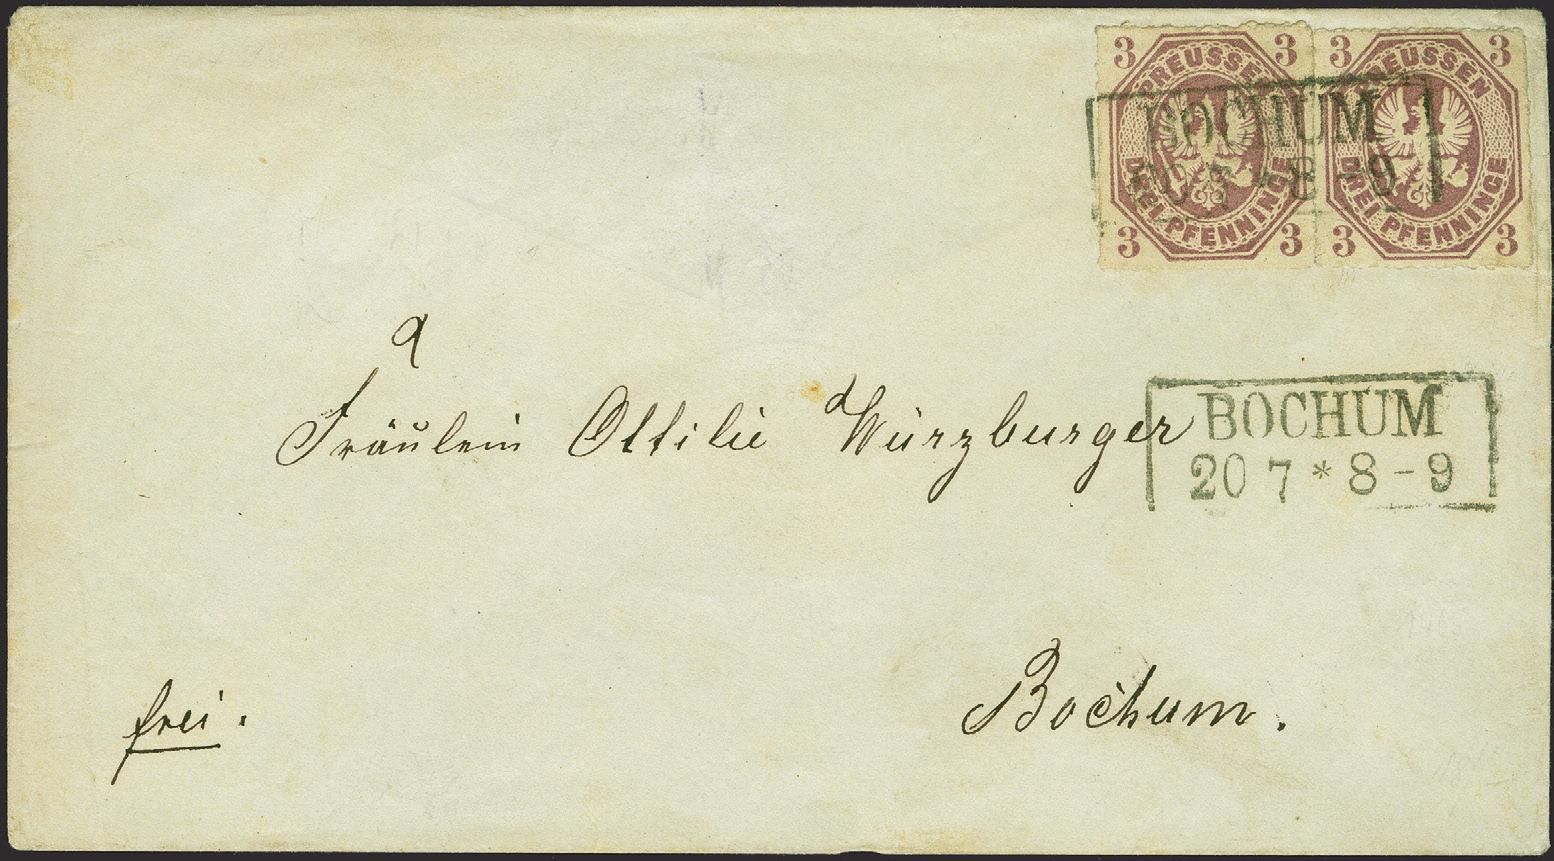 3 3 3 3
PREUSSEN PREUSSEN
BOCHUM
20 7 * 8 - 9
DREI PFENNINGE DREI PFENNINGE
3 3 3 3
Fräulein Ottilie Würzburger
BOCHUM
20 7 * 8 - 9
frei.
Bochum.